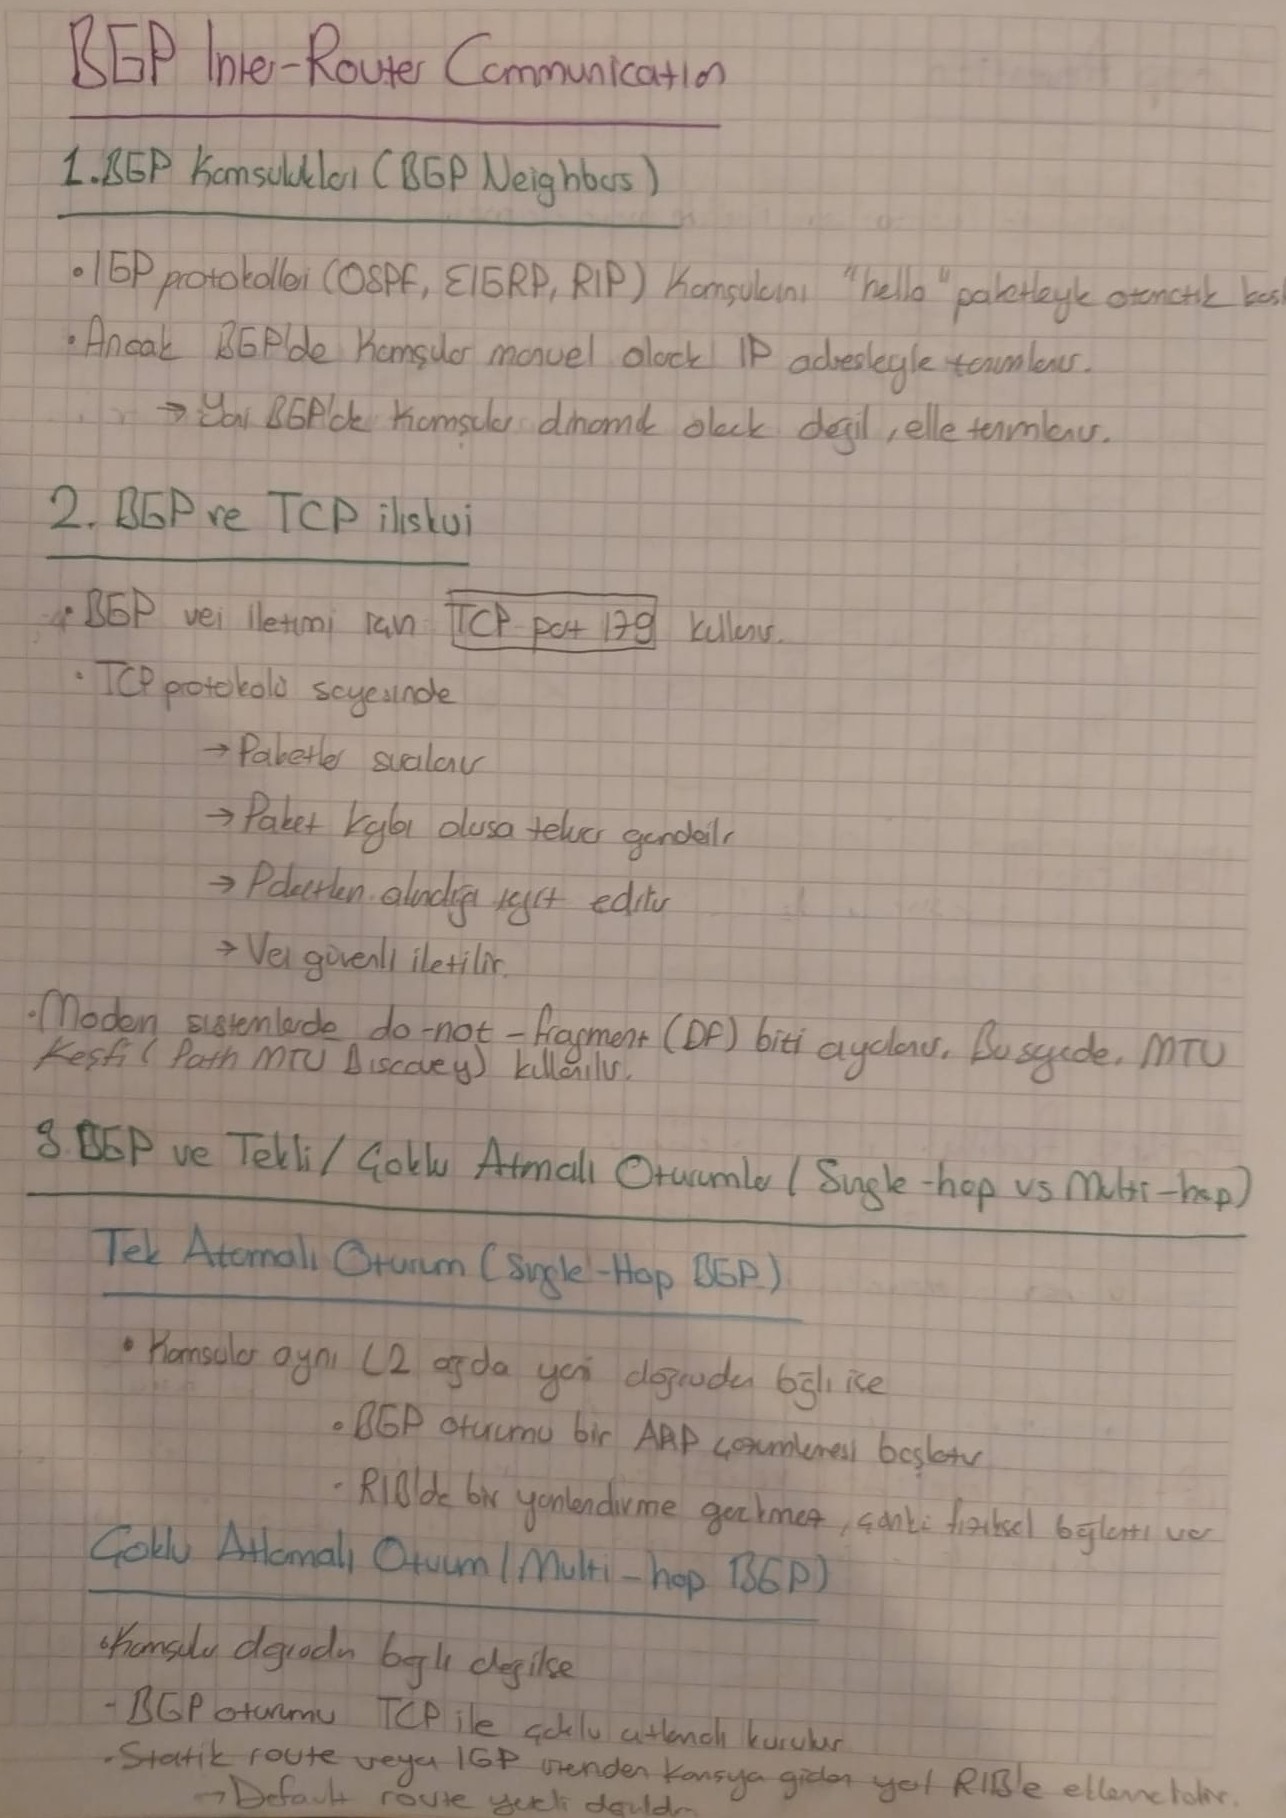 BGP Inter-Router Communication
1. BGP Komşulukları (BGP Neighbors)
• IGP protokolleri (OSPF, EIGRP, RIP) Komşularını "hello" paketleriyle otomatik
• Ancak BGP'de Komşular manuel olarak IP adresleriyle tanımlanır.
→ Yani BGP'de Komşular dinamik olarak değil, elle tanımlanır.
2. BGP ve TCP ilişkisi
• BGP veri iletimi için TCP port 179 kullanır.
• TCP protokolü sayesinde
→ Paketler sıralanır
→ Paket kaybı olursa tekrar gönderilir
→ Paketlerin alındığı teyit edilir
→ Veri güvenli iletilir.
• Modern sistemlerde do-not-fragment (DF) biti ayarlanır. Bu sayede, MTU
Keşfi (Path MTU Discovery) kullanılır.
3. BGP ve Tekli/Çoklu Atmalı Oturumlar (Single-hop vs Multi-hop)
Tek Atamalı Oturum (Single-Hop BGP)
• Komşular aynı L2 ağda yani doğrudan bağlı ise
• BGP oturumu bir ARP çözümlemesi başlatır
- RIB'de bir yönlendirme gerekmez, çünkü fiziksel bağlantı var
Çoklu Atlamalı Oturum (Multi-hop BGP)
• Komşular doğrudan bağlı değilse
- BGP oturumu TCP ile çoklu atlamalı kurulur
• Statik route veya IGP üzerinden komşuya giden yol RIB'e eklenmelidir.
→ Default route yeterli değildir